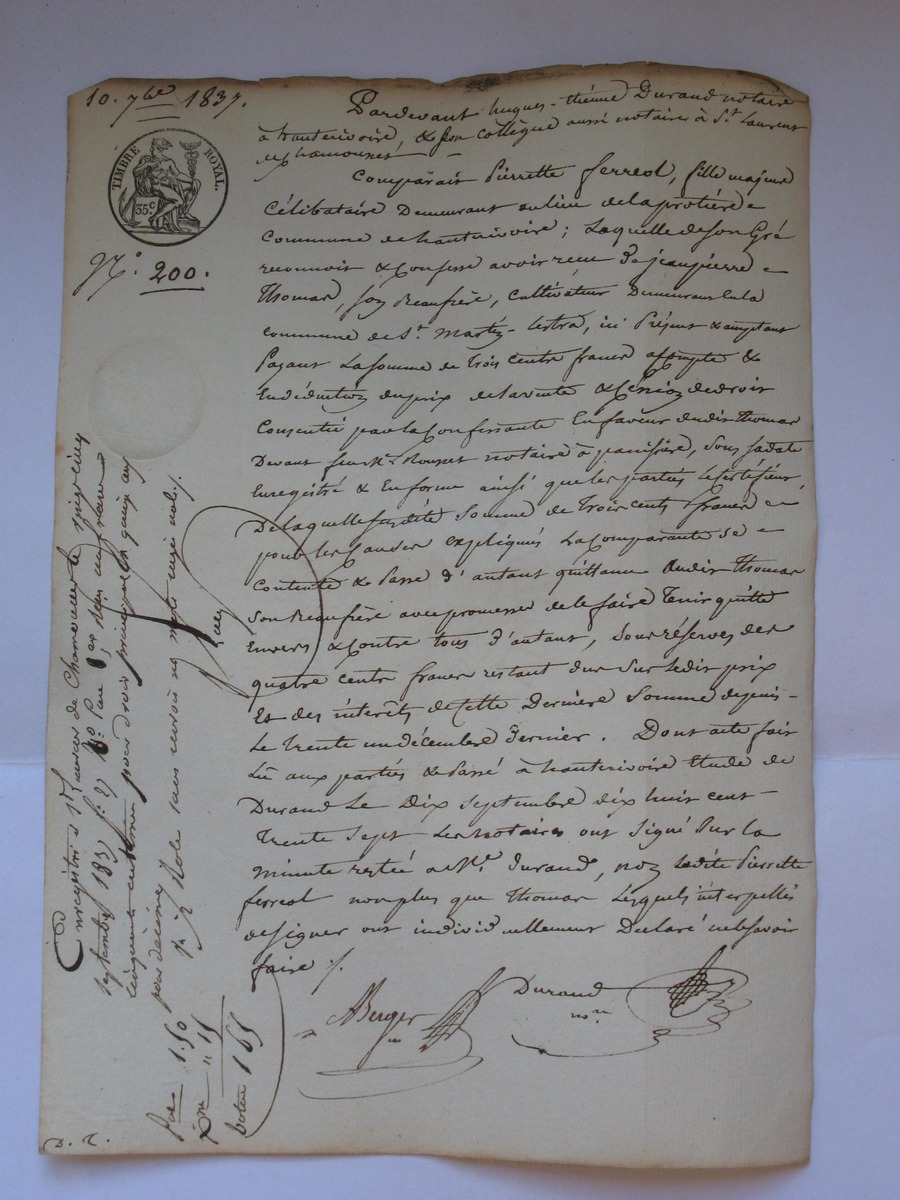 10. 7bre 1837.
TIMBRE ROYAL.
35 c
N.° 200.
Pardevant hugues-étienne Durand notaire
à hauterivoire, & son collègue aussi notaire à St. Laurent
de chamousset,
Comparait Pierrette ferreol, fille majeure
Célibataire Demeurant au lieu de la protière
Commune de hauterivoire; Laquelle de son Gré
reconnoit & Confesse avoir recu de jeanpierre
Thomas, son Beaufrère, Cultivateur Demeurant en la
commune de St. Martin-lestra, ici Présent & acceptant
Payant La somme de Trois Cents francs acompte &
En déduction du prix de la vente & Cession de droit
Consentie par la Confessante En faveur dudit thomas
Devant feu Me. Rousset notaire à panissière, sous sa date
Enregistré & En forme ainsi que les parties L'ont
De laquelle susdite Somme de Trois Cents francs
pour les Causes expliquées La Comparante se
Contente & Passe d'autant quittance Audit Thomas
Son Beaufrère avec promesse de le faire Tenir quitte
Envers & Contre tous d'autant, Sous réserves des
quatre cents francs restant dus Sur Ledit prix
Et des intérêts de Cette Dernière Somme depuis
Le Trente un décembre Dernier. Dont acte fait
Lu aux parties & Passé à hauterivoire Etude de
Durand Le Dix septembre dix huit cent
Trente Sept Les Notaires ont Signé Sur la
minute restée à Me. Durand, non Ladite Pierrette
ferreol non plus que Thomas Lesquels interpellés
de signer ont individuellement Déclaré ne le savoir
faire ./.
ABerger
Durand
nore
Enregistré à St. Laurent de Chamousset le vingt cinq
septembre 1837 f.° 27 R.° Case 8, reçu un franc
cinquante centimes pour droit principal et quinze cent
pour décime, Role sans renvoi ni mots rayés nuls.
fce 1.50
xme " 15
total 1 65
D. R.